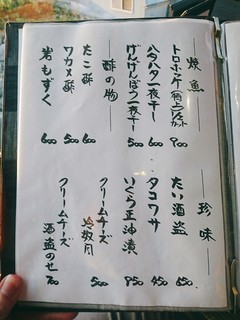 焼魚
トロホッケ
900
ハタハタ一夜干し
600
げんげんぼう一夜干し
500
酢の物
たこ酢
600
ワカメ酢
500
岩もずく
600
珍味
たい酒盗
650
タコワサ
450
いくら正油漬
950
クリームチーズ
500
クリームチーズ
酒盗のせ
700